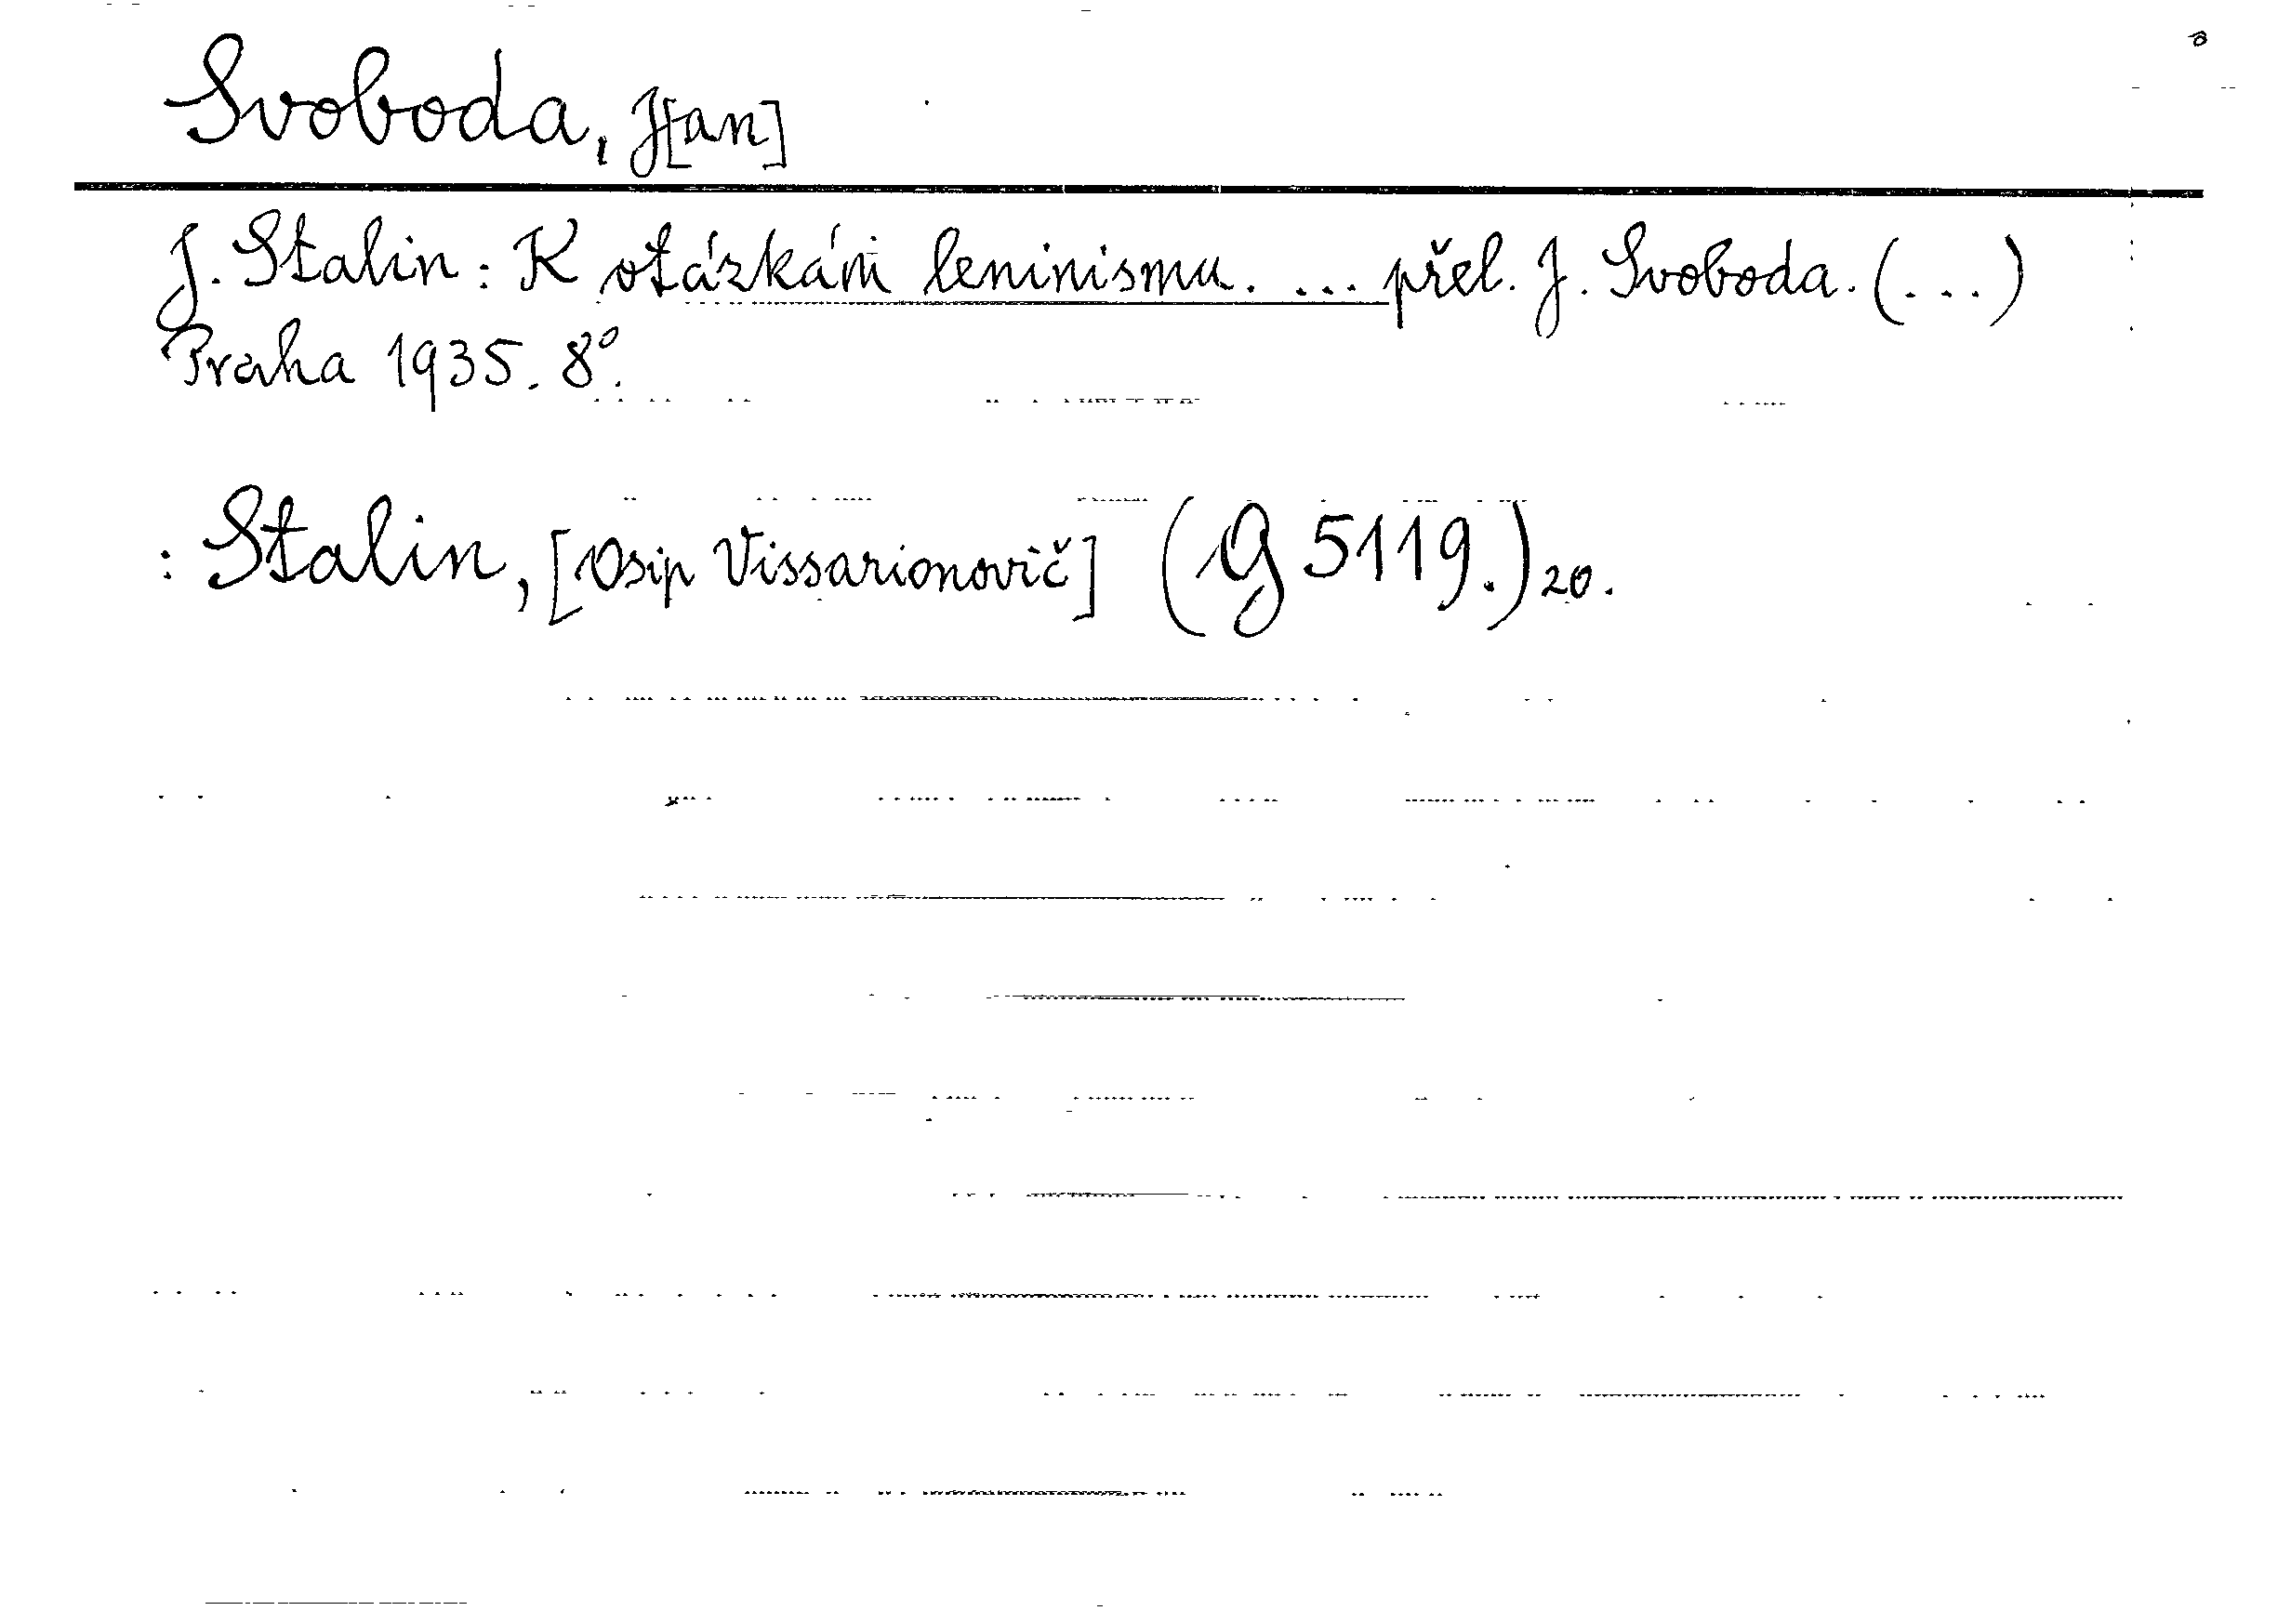 Svoboda, J[an]
J. Stalin: K otázkám leninismu. ... přel. J. Svoboda. (...)
Praha 1935. 8°.
: Stalin, [Osip Vissarionovič] (G 5119.) 20.